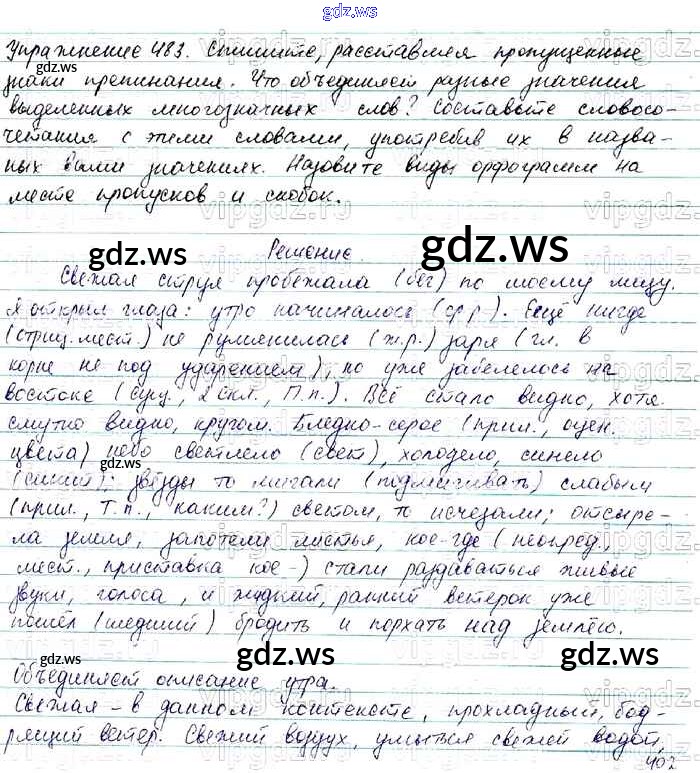 gdz.ws
Упражнение 483. Спишите, расставляя пропущенные
знаки препинания. Что объединяет разные значения
выделенных многозначных слов? Составьте словосо-
четания с этими словами, употребив их в назва-
ных вами значениях. Назовите виды орфограмм на
месте пропусков и скобок.
Решение.
Свежая струя пробежала (бег) по моему лицу.
Я открыл глаза: утро начиналось (ср.р.). Ещё нигде
(отриц. мест.) не румянилась (ж.р.) заря (гл. в
корне не под ударением), но уже забелелось на
востоке (сущ., 2 скл., П.п.). Всё стало видно, хотя
смутно видно, кругом. Бледно-серое (прил., оцен.
цвета) небо светлело (свет), холодело, синело
(синий); звёзды то мигали (подмигивать) слабым
(прил., Т.п., каким?) светом, то исчезали; отсыре-
ла земля, запотели листья, кое-где (неопред.
мест., приставка кое-) стали раздаваться живые
звуки, голоса, и жидкий, ранний ветерок уже
пошёл (шедший) бродить и порхать над землёю.
Объединяет описание утра.
Свежая - в данном контексте, прохладный, бод-
рящий ветер. Свежий воздух, умыться свежей водой,
402